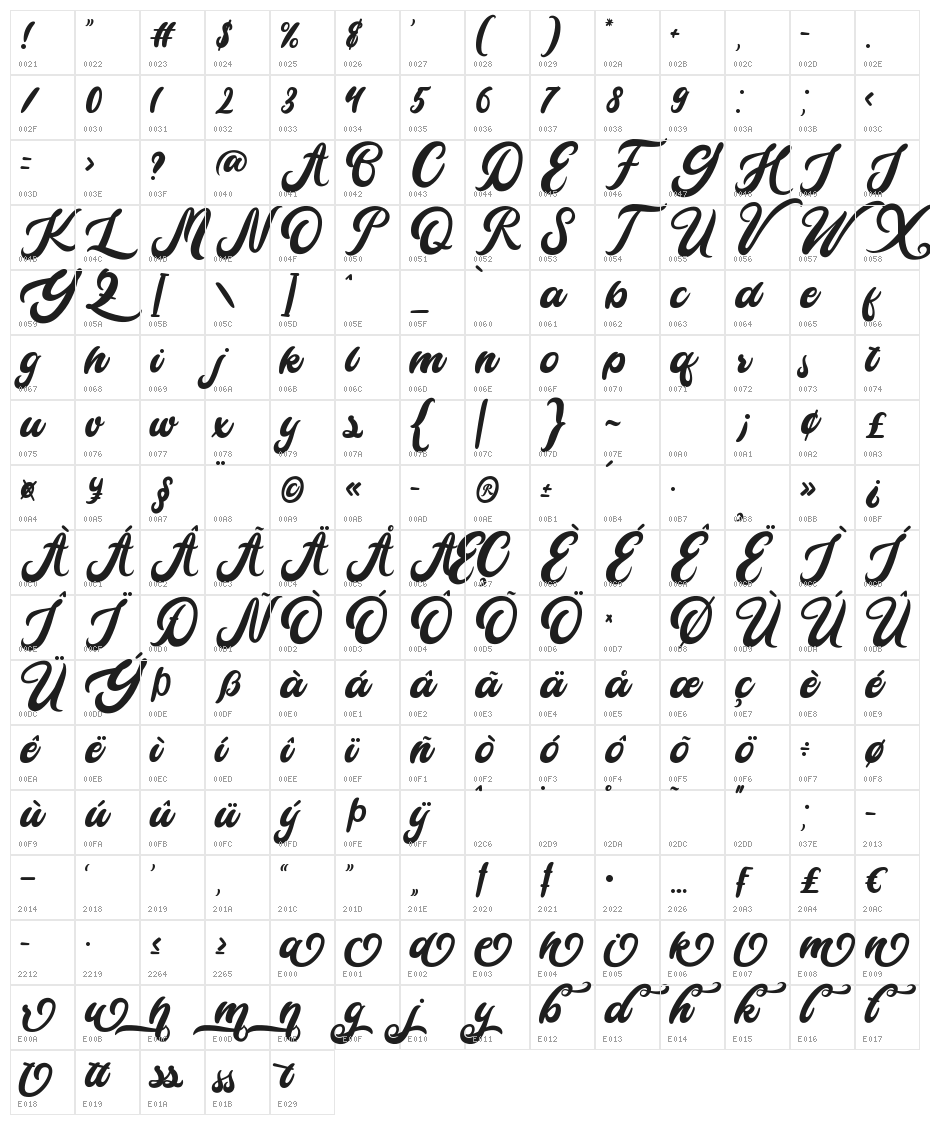 ! " # $ % & ' ( ) * + , - .
0021 0022 0023 0024 0025 0026 0027 0028 0029 002A 002B 002C 002D 002E
/ 0 1 2 3 4 5 6 7 8 9 : ; <
002F 0030 0031 0032 0033 0034 0035 0036 0037 0038 0039 003A 003B 003C
= > ? @ A B C D E F G H I J
003D 003E 003F 0040 0041 0042 0043 0044 0045 0046 0047 0048 0049 004A
K L M N O P Q R S T U V W X
004B 004C 004D 004E 004F 0050 0051 0052 0053 0054 0055 0056 0057 0058
Y Z [ \ ] ^ _ ` a b c d e f
0059 005A 005B 005C 005D 005E 005F 0060 0061 0062 0063 0064 0065 0066
g h i j k l m n o p q r s t
0067 0068 0069 006A 006B 006C 006D 006E 006F 0070 0071 0072 0073 0074
u v w x y z { | } ~ ¡ ¢ £
0075 0076 0077 0078 0079 007A 007B 007C 007D 007E 00A0 00A1 00A2 00A3
¤ ¥ § ¨ © « - ® ± ´ · ¸ » ¿
00A4 00A5 00A7 00A8 00A9 00AB 00AD 00AE 00B1 00B4 00B7 00B8 00BB 00BF
À Á Â Ã Ä Å Æ Ç È É Ê Ë Ì Í
00C0 00C1 00C2 00C3 00C4 00C5 00C6 00C7 00C8 00C9 00CA 00CB 00CC 00CD
Î Ï Ð Ñ Ò Ó Ô Õ Ö × Ø Ù Ú Û
00CE 00CF 00D0 00D1 00D2 00D3 00D4 00D5 00D6 00D7 00D8 00D9 00DA 00DB
Ü Ý Þ ß à á â ã ä å æ ç è é
00DC 00DD 00DE 00DF 00E0 00E1 00E2 00E3 00E4 00E5 00E6 00E7 00E8 00E9
ê ë ì í î ï ñ ò ó ô õ ö ÷ ø
00EA 00EB 00EC 00ED 00EE 00EF 00F1 00F2 00F3 00F4 00F5 00F6 00F7 00F8
ù ú û ü ý þ ÿ ˆ ˙ ˚ ˜ ˝ ; –
00F9 00FA 00FB 00FC 00FD 00FE 00FF 02C6 02D9 02DA 02DC 02DD 037E 2013
— ‘ ’ ‚ “ ” „ † ‡ • … ₣ ₤ €
2014 2018 2019 201A 201C 201D 201E 2020 2021 2022 2026 20A3 20A4 20AC
− ∙ ≤ ≥ a c d e h i k l m n
2212 2219 2264 2265 E000 E001 E002 E003 E004 E005 E006 E007 E008 E009
r u h m n g j y b d h k l t
E00A E00B E00C E00D E00E E00F E010 E011 E012 E013 E014 E015 E016 E017
t tt ss ss t
E018 E019 E01A E01B E029